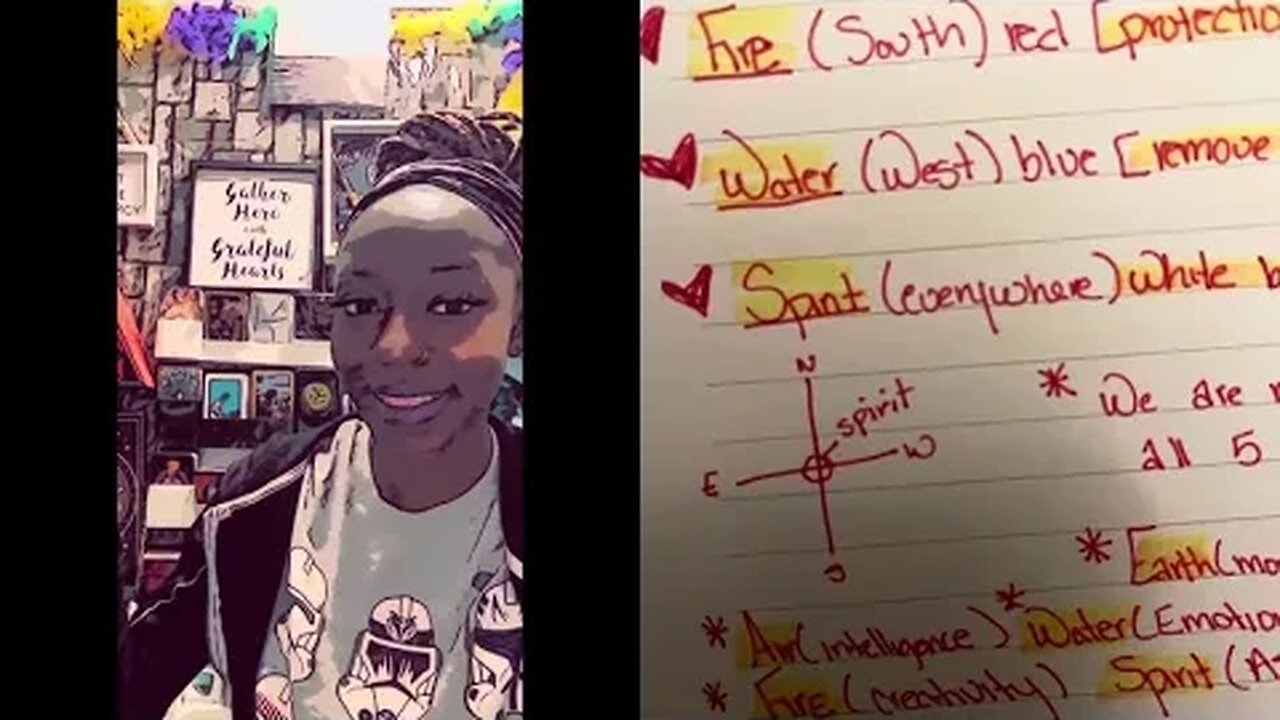 Gather
Here
with
Grateful
Hearts
Fire (South) red [protectio
Water (West) blue [remove
Spirit (everywhere) white b
N
spirit
W
E
S
* We are
all 5
* Earth (mo
* Air (intelligence) * Water (Emotio
* Fire (creativity) Spirit (A